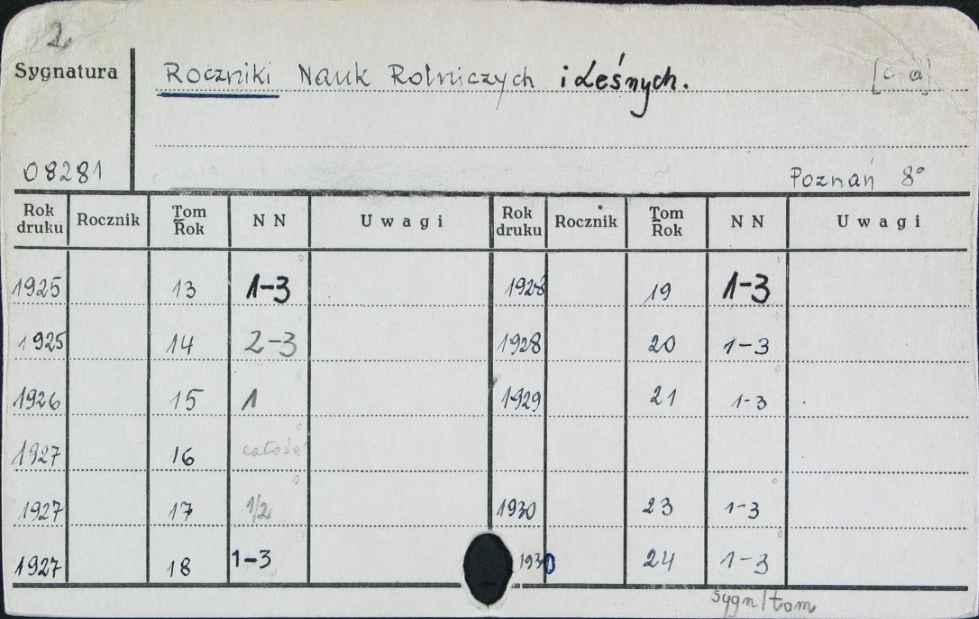 2
Sygnatura
Roczniki Nauk Rolniczych i Leśnych. [c-a]
08281
Poznań 8°
Rok druku Rocznik Tom Rok NN Uwagi Rok druku Rocznik Tom Rok NN Uwagi
1925 13 1-3 1928 19 1-3
1925 14 2-3 1928 20 1-3
1926 15 1 1929 21 1-3
1927 16 całość
1927 17 1/2 1930 23 1-3
1927 18 1-3 1930 24 1-3
sygn/tom